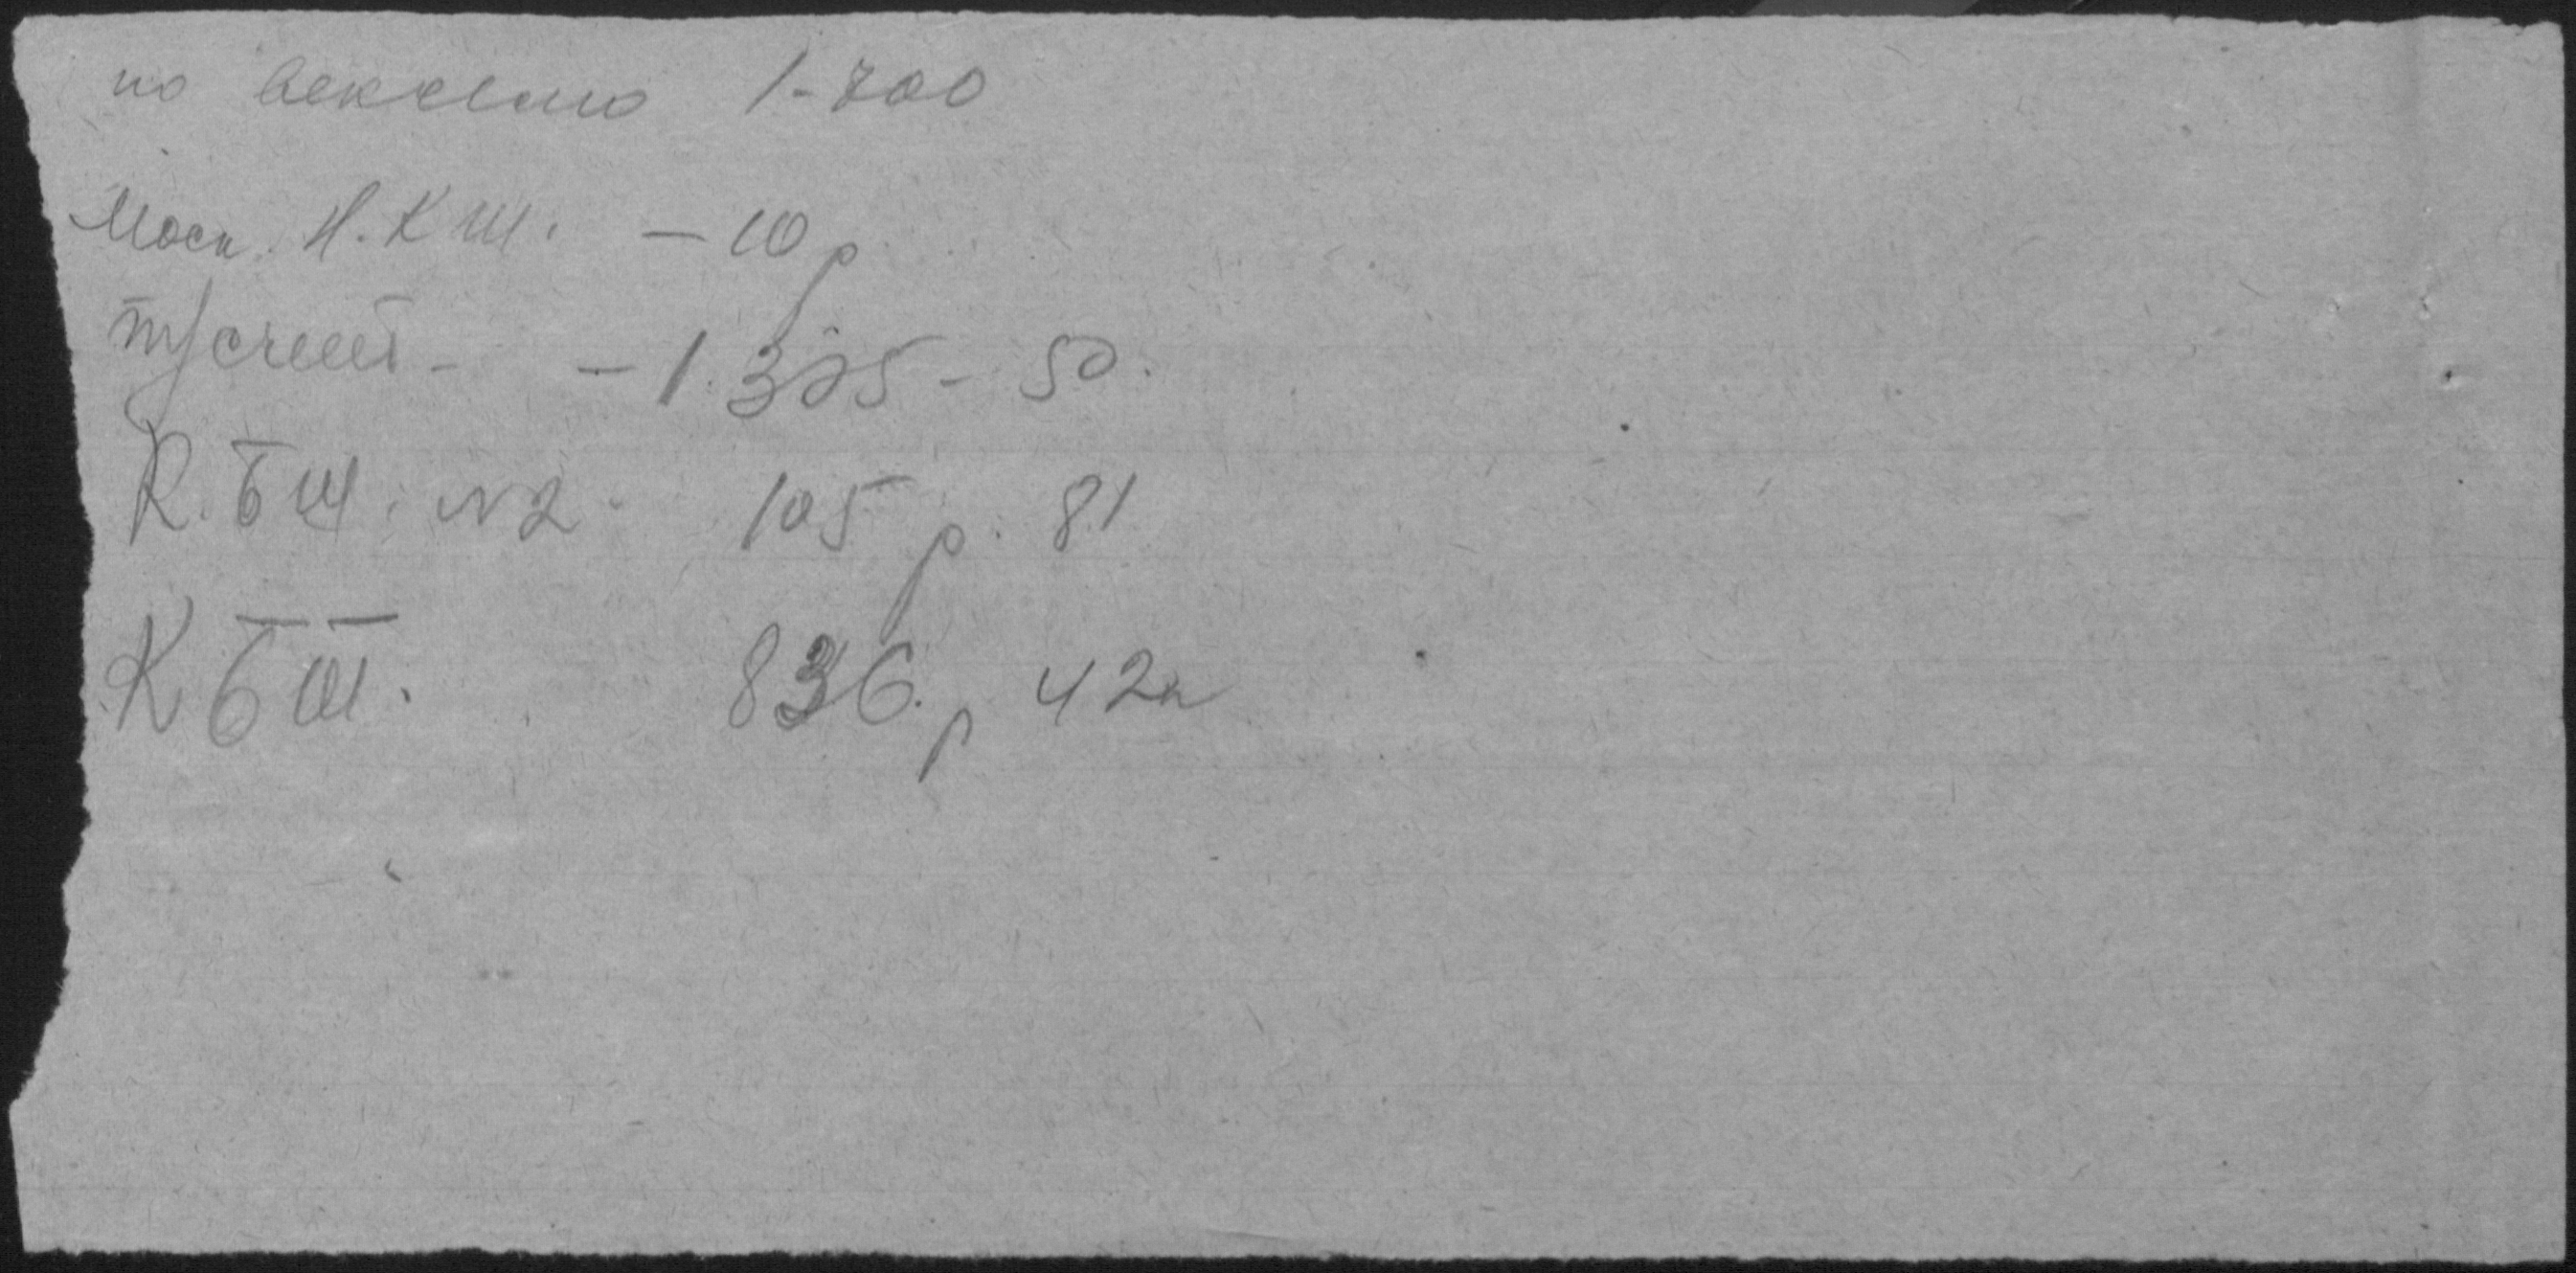 по векселю 1-700
Моск. Н. К Ш. — 10 р
т/счет - — 1.305 - 50.
К. Б Ш. №2 - 105 р. 81
К Б Ш. 836. р 42к